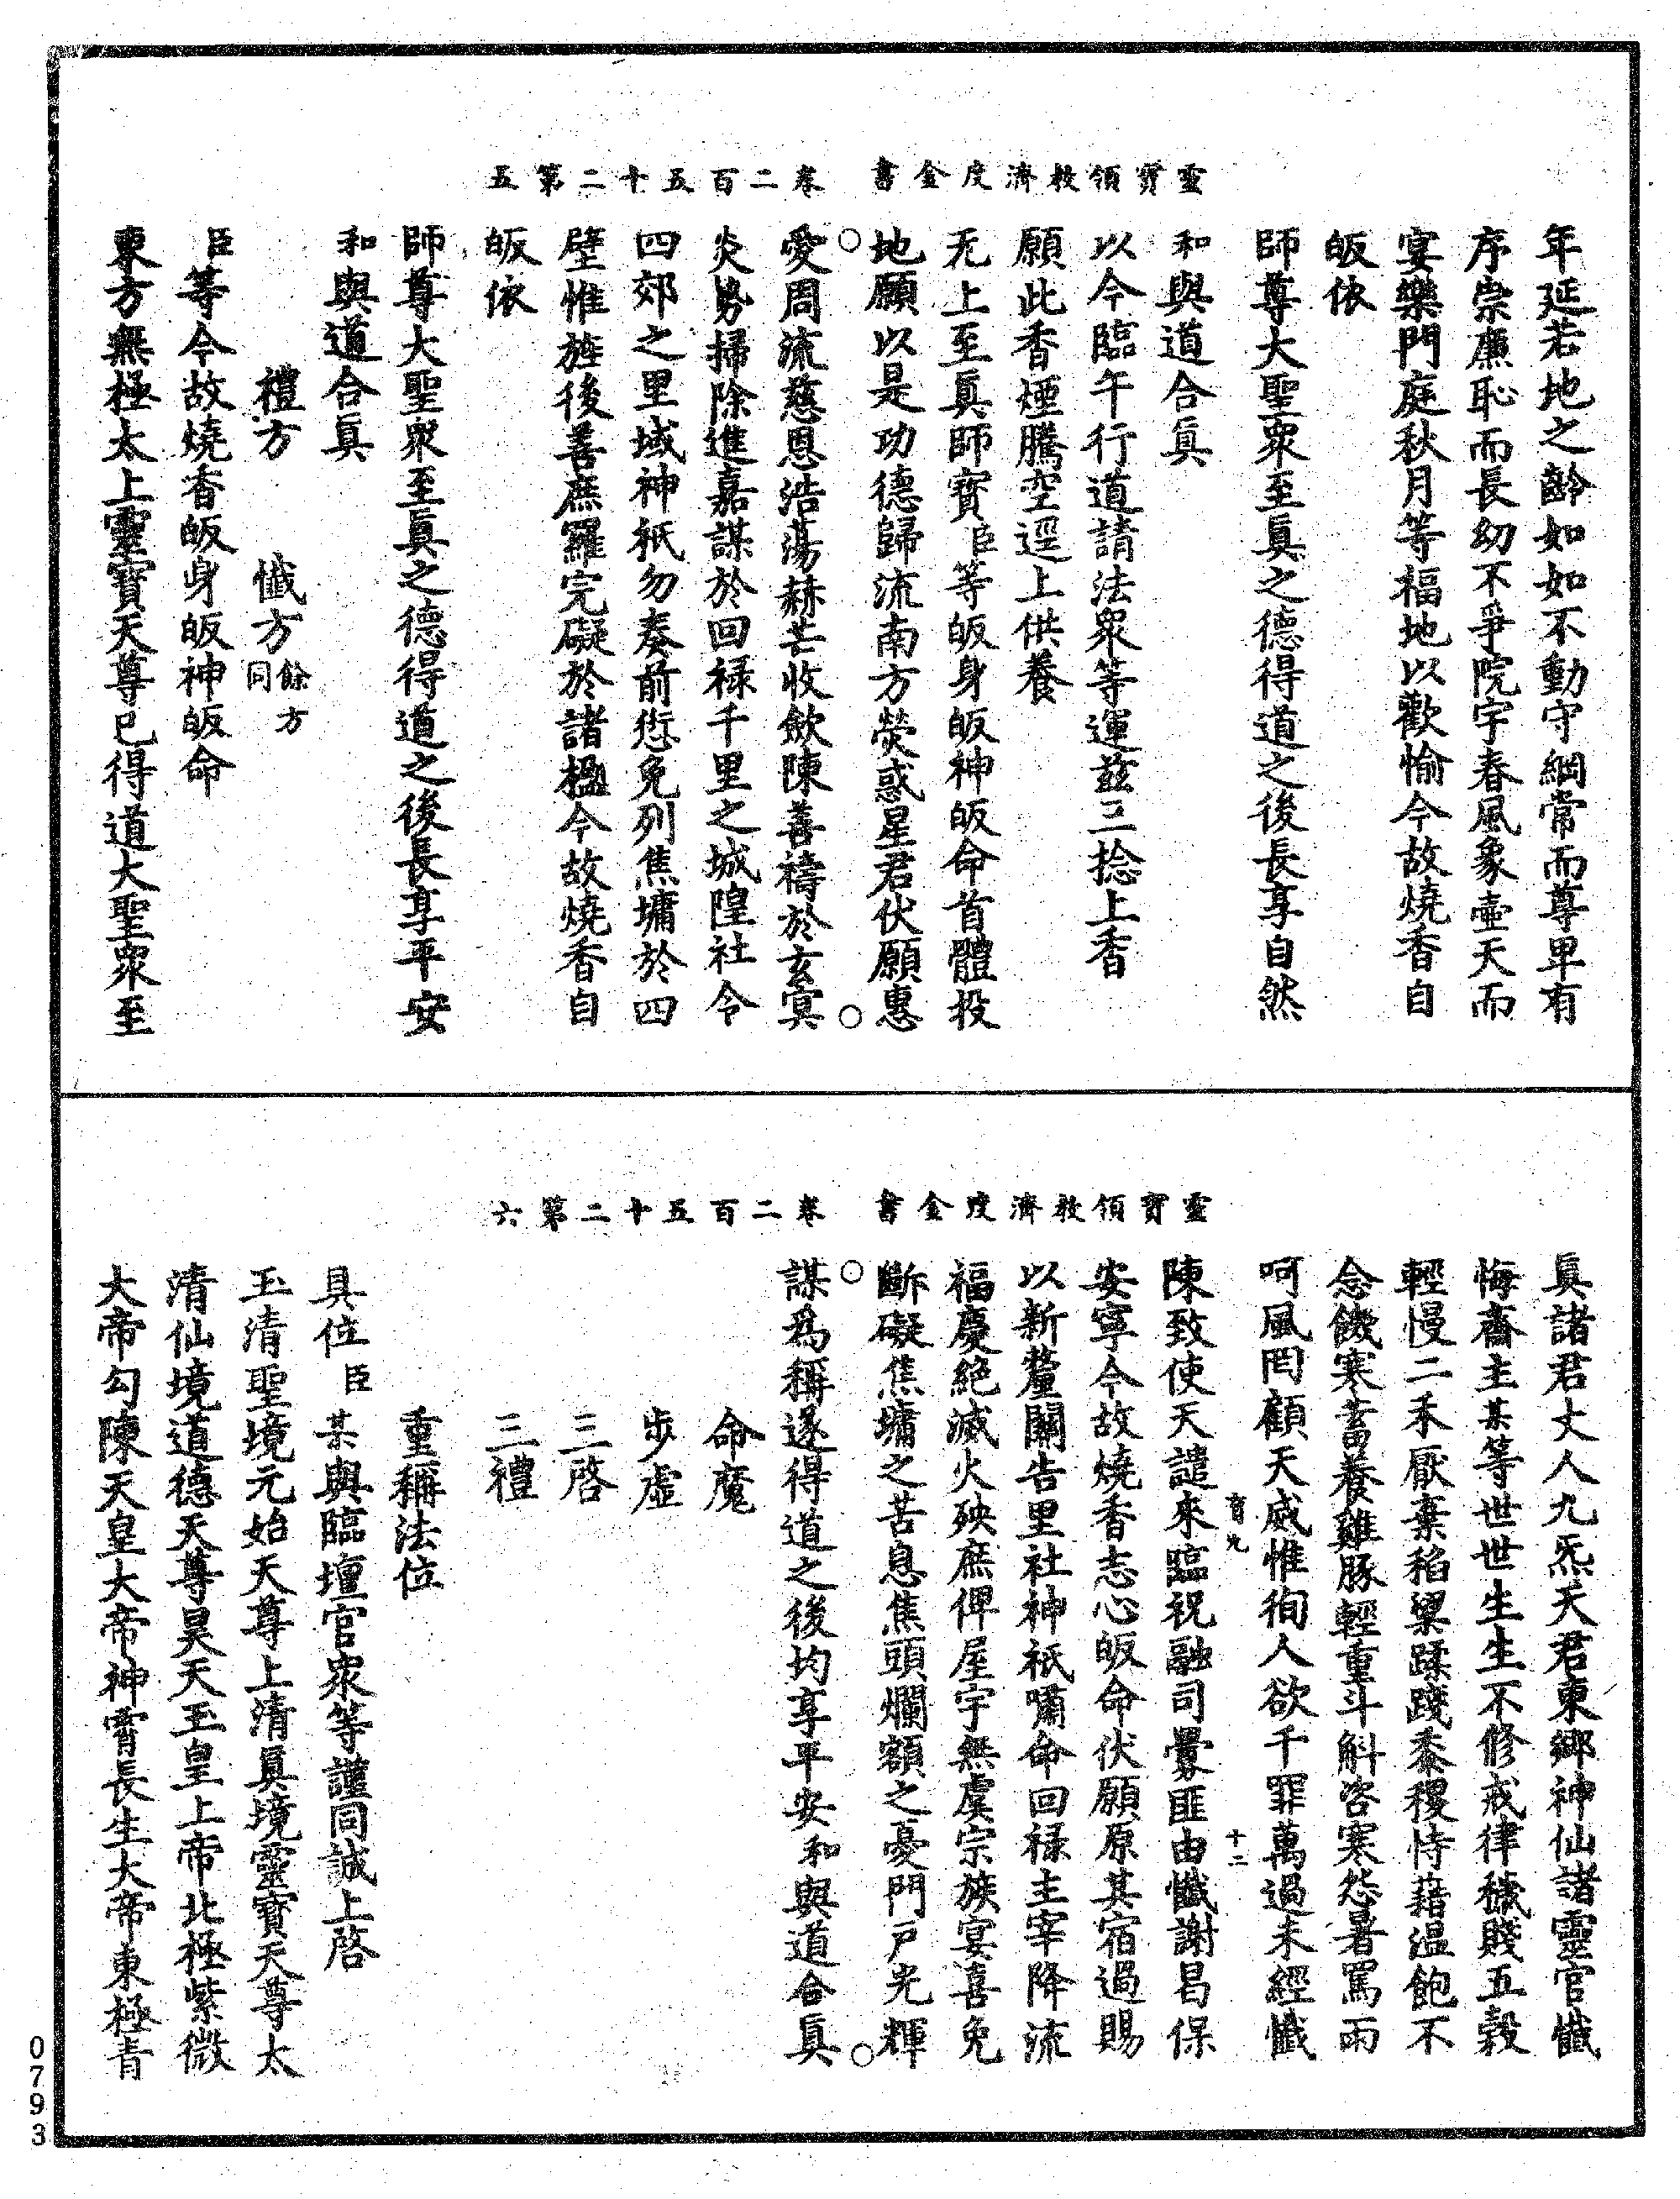 靈寶領教濟度金書　卷二百五十二第五
年延若地之齡如如不動守綱常而尊卑有
序崇廉恥而長幼不爭院宇春風象壺天而
宴樂門庭秋月等福地以歡愉今故燒香自
皈依
師尊大聖眾至真之德得道之後長享自然
和與道合真
以今臨午行道請法眾等運茲三捻上香
願此香煙騰空逕上供養
无上至真師寶臣等皈身皈神皈命首體投
地願以是功德歸流南方熒惑星君伏願惠
愛周流慈恩浩蕩赫芒收斂陳善禱於玄冥
炎勢掃除進嘉謀於回祿千里之城隍社令
四郊之里域神祇勿奏前愆免列焦墉於四
壁惟旌後善庶羅完礙於諸楹今故燒香自
皈依
師尊大聖眾至真之德得道之後長享平安
和與道合真
禮方　懺方餘方同
臣等今故燒香皈身皈神皈命
東方無極太上靈寶天尊已得道大聖眾至
靈寶領教濟度金書　卷二百五十二第六
真諸君丈人九炁天君東鄉神仙諸靈官懺
悔齋主某等世世生生不修戒律穢賤五穀
輕慢二禾厭棄稻粱蹂踐黍稷恃藉溫飽不
念饑寒蓄養雞豚輕重斗斛咨寒怨暑罵雨
呵風罔顧天威惟徇人欲千罪萬過未經懺
育九　十二
陳致使天譴來臨祝融司釁匪由懺謝曷保
安寧今故燒香志心皈命伏願原其宿過賜
以新釐關告里社神祇嘯命回祿主宰降流
福慶絕滅火殃庶俾屋宇無虞宗族宴喜免
斷礙焦墉之苦息焦頭爛額之憂門戶光輝
謀為稱遂得道之後均享平安和與道合真
命魔
步虛
三啓
三禮
重稱法位
具位臣某與臨壇官眾等謹同誠上啓
玉清聖境元始天尊上清真境靈寶天尊太
清仙境道德天尊昊天玉皇上帝北極紫微
大帝勾陳天皇大帝神霄長生大帝東極青
0793